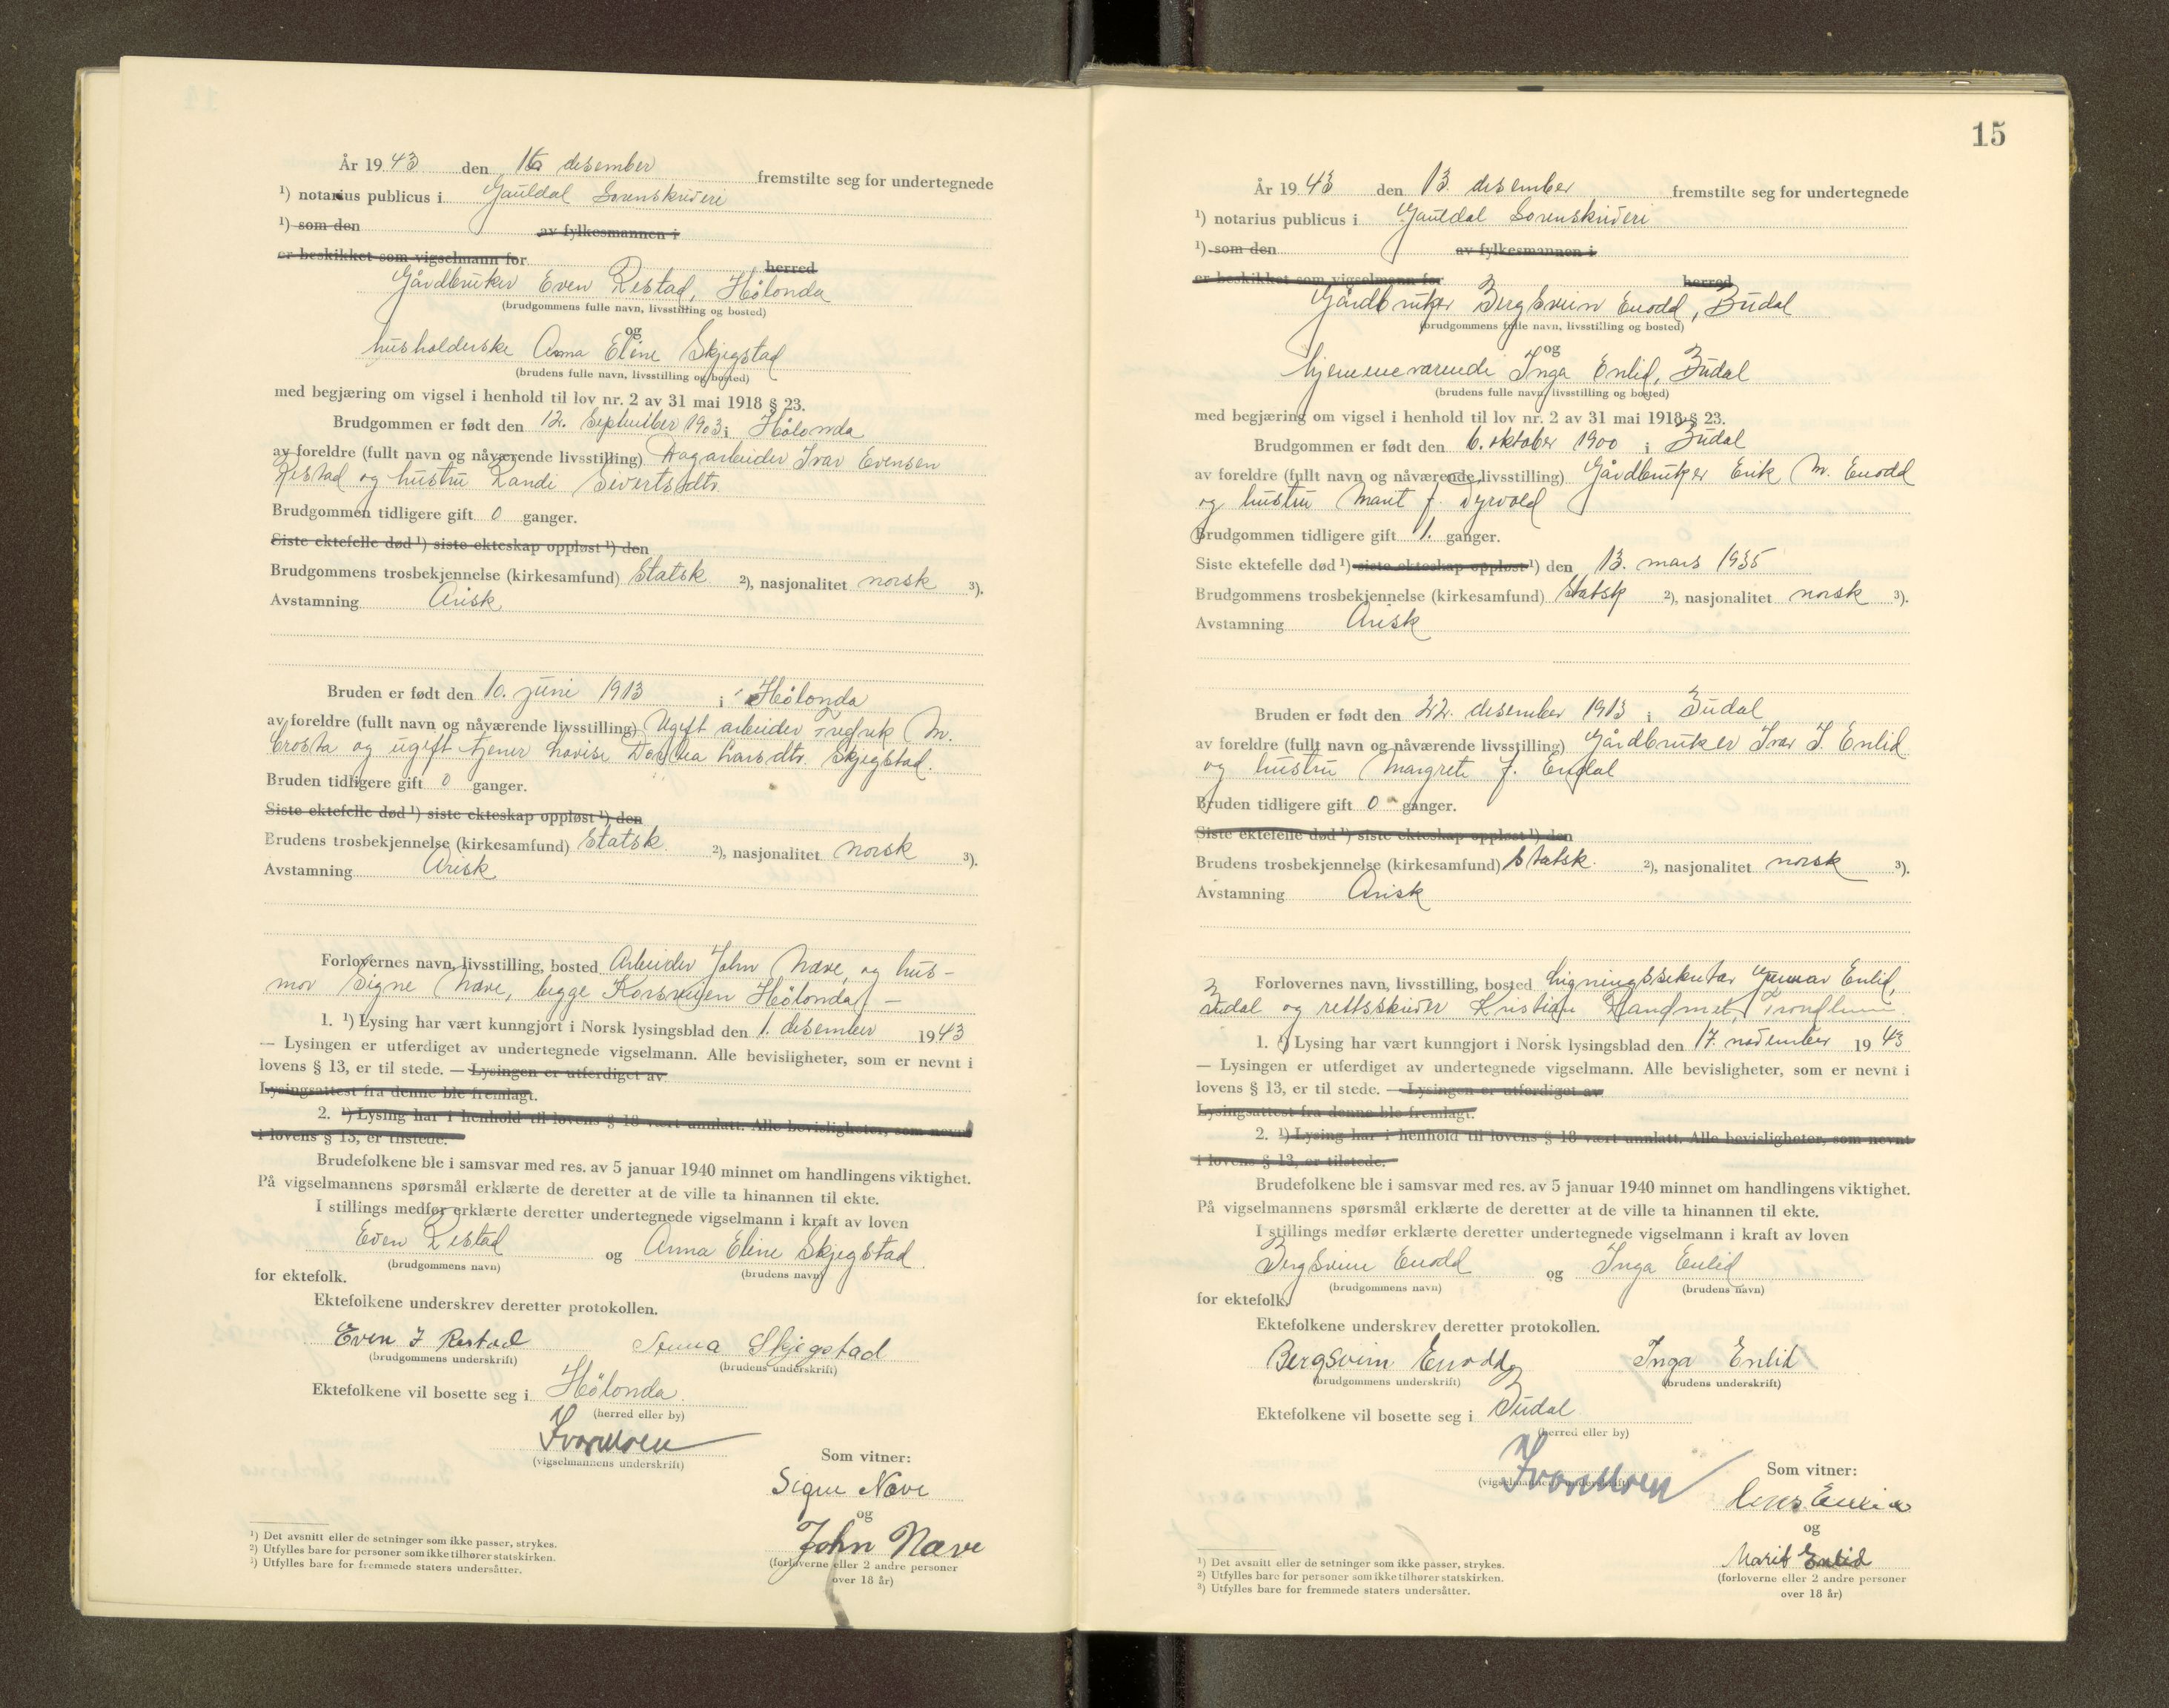 År 1943 den desember fremstilte seg for undertegnede
1) notarius publicus i Gauldal Sorenskriveri
1) som den av fylkesmannen i
er beskikket som vigselmann for herred
Gårdbruker Even Restad, Hölonda
(brudgommens fulle navn, livsstilling og bosted)
og
husholderske Anna Eline Skjegstad
(brudens fulle navn, livsstilling og bosted)
med begjæring om vigsel i henhold til lov nr. 2 av 31 mai 1918 § 23.
Brudgommen er født den 12. September 1903 i Hölonda
av foreldre (fullt navn og nåværende livsstilling) Dagarbeider Ivar Evensen
Restad og hustru Randi Sivertsdtr.
Brudgommen tidligere gift 0 ganger.
Siste ektefelle død 1) siste ekteskap oppløst 1) den
Brudgommens trosbekjennelse (kirkesamfund) Statsk 2), nasjonalitet norsk 3).
Avstamning Arisk
Bruden er født den 10. juni 1913 i Hölonda
av foreldre (fullt navn og nåværende livsstilling) Ugift arbeider M.
Krosta og ugift tjener Lovise Dorthea Larsdtr. Skjegstad.
Bruden tidligere gift 0 ganger.
Siste ektefelle død 1) siste ekteskap oppløst 1) den
Brudens trosbekjennelse (kirkesamfund) Statsk. 2), nasjonalitet norsk 3).
Avstamning Arisk
Forlovernes navn, livsstilling, bosted Arbeider John Næve, og hus-
mor Signe Næve, begge Korsveien Hölonda -
1. 1) Lysing har vært kunngjort i Norsk lysingsblad den 1. desember 1943
— Lysingen er utferdiget av undertegnede vigselmann. Alle bevisligheter, som er nevnt i
lovens § 13, er til stede. — Lysingen er utferdiget av
Lysingsattest fra denne ble fremlagt.
2. 1) Lysing har i henhold til lovens § 18 vært unnlatt. Alle bevisligheter, som nevnt
i lovens § 13, er tilstede.
Brudefolkene ble i samsvar med res. av 5 januar 1940 minnet om handlingens viktighet.
På vigselmannens spørsmål erklærte de deretter at de ville ta hinannen til ekte.
I stillings medfør erklærte deretter undertegnede vigselmann i kraft av loven
Even Restad og Anna Eline Skjegstad
(brudgommens navn) (brudens navn)
for ektefolk.
Ektefolkene underskrev deretter protokollen.
Even I Restad Anna Skjegstad
(brudgommens underskrift) (brudens underskrift)
Ektefolkene vil bosette seg i Hölonda.
(herred eller by)
Ivar Moen
(vigselmannens underskrift)
Som vitner:
Signe Næve
og
John Næve
(forloverne eller 2 andre personer
over 18 år)
1) Det avsnitt eller de setninger som ikke passer, strykes.
2) Utfylles bare for personer som ikke tilhører statskirken.
3) Utfylles bare for fremmede staters undersåtter.
15
År 1943 den 13. desember fremstilte seg for undertegnede
1) notarius publicus i Gauldal Sorenskriveri
1) som den av fylkesmannen i
er beskikket som vigselmann for herred
Gårdbruker Bergsvein Enodd, Budal
(brudgommens fulle navn, livsstilling og bosted)
og
hjemmeværende Inga Enlid, Budal
(brudens fulle navn, livsstilling og bosted)
med begjæring om vigsel i henhold til lov nr. 2 av 31 mai 1918 § 23.
Brudgommen er født den 6. oktober 1900 i Budal
av foreldre (fullt navn og nåværende livsstilling) Gårdbruker Erik M. Enodd
og hustru Marit f. Dyrvold
Brudgommen tidligere gift 1. ganger.
Siste ektefelle død 1) siste ekteskap oppløst 1) den 13. mars 1935
Brudgommens trosbekjennelse (kirkesamfund) Statsk 2), nasjonalitet norsk 3).
Avstamning Arisk
Bruden er født den 22. desember 1913 i Budal
av foreldre (fullt navn og nåværende livsstilling) Gårdbruker Ivar I. Enlid
og hustru Margrete f. Endal
Bruden tidligere gift 0 ganger.
Siste ektefelle død 1) siste ekteskap oppløst 1) den
Brudens trosbekjennelse (kirkesamfund) Statsk. 2), nasjonalitet norsk 3).
Avstamning Arisk
Forlovernes navn, livsstilling, bosted Ligningssekretær Gunnar Enlid,
Budal og rettsskriver Kristian Trondheim.
1. 1) Lysing har vært kunngjort i Norsk lysingsblad den 17. november 1943
— Lysingen er utferdiget av undertegnede vigselmann. Alle bevisligheter, som er nevnt i
lovens § 13, er til stede. — Lysingen er utferdiget av
Lysingsattest fra denne ble fremlagt.
2. 1) Lysing har i henhold til lovens § 18 vært unnlatt. Alle bevisligheter, som nevnt
i lovens § 13, er tilstede.
Brudefolkene ble i samsvar med res. av 5 januar 1940 minnet om handlingens viktighet.
På vigselmannens spørsmål erklærte de deretter at de ville ta hinannen til ekte.
I stillings medfør erklærte deretter undertegnede vigselmann i kraft av loven
Bergsvein Enodd og Inga Enlid
(brudgommens navn) (brudens navn)
for ektefolk.
Ektefolkene underskrev deretter protokollen.
Bergsvein Enodd Inga Enlid
(brudgommens underskrift) (brudens underskrift)
Ektefolkene vil bosette seg i Budal
(herred eller by)
Ivar Moen
(vigselmannens underskrift)
Som vitner:
og
Marit Enlid
(forloverne eller 2 andre personer
over 18 år)
1) Det avsnitt eller de setninger som ikke passer, strykes.
2) Utfylles bare for personer som ikke tilhører statskirken.
3) Utfylles bare for fremmede staters undersåtter.